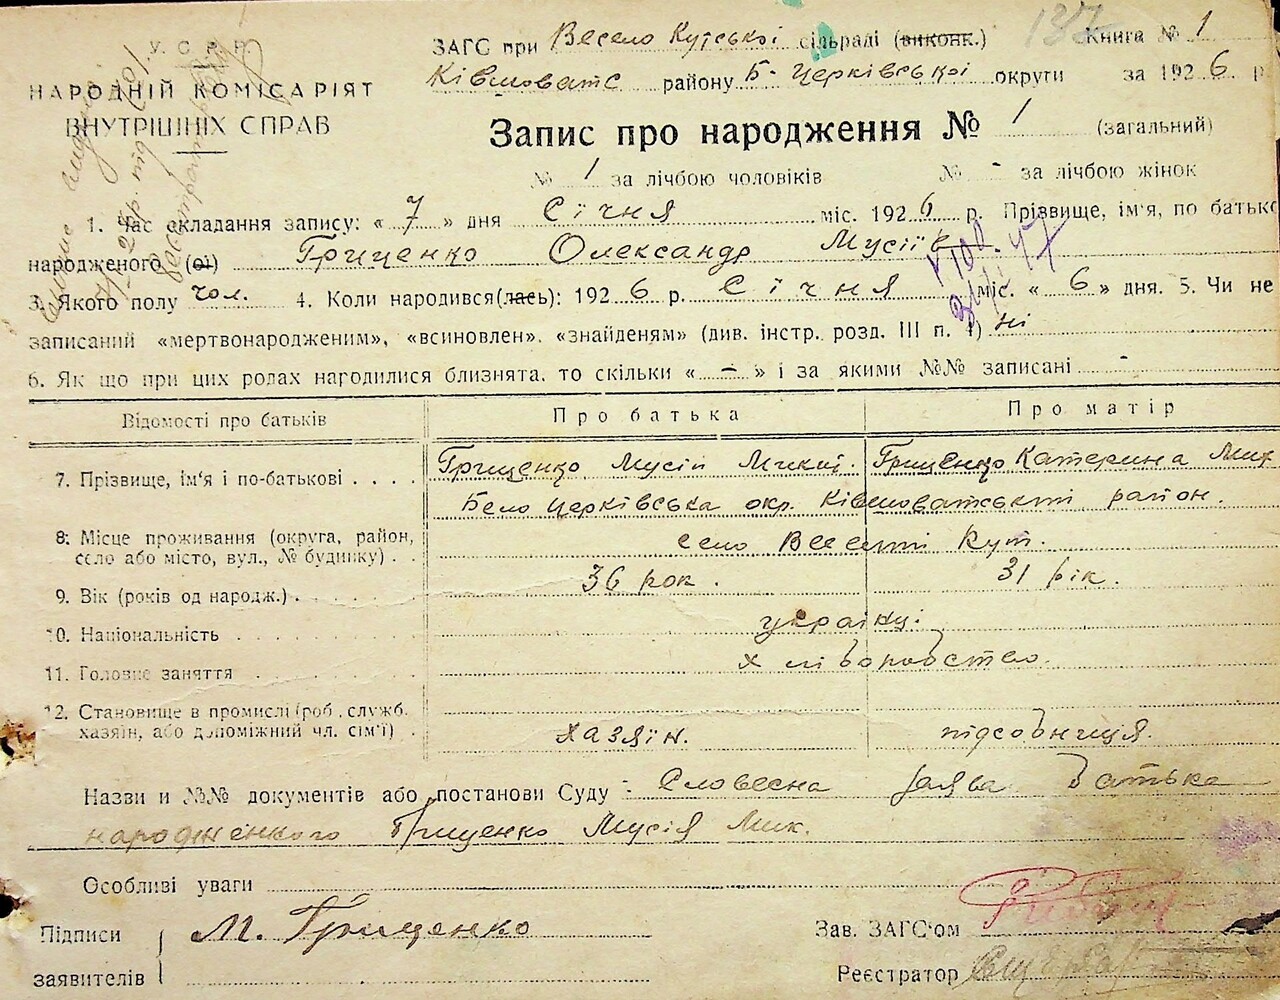 У.С.Р.Р.
НАРОДНІЙ КОМІСАРІЯТ
ВНУТРІШНІХ СПРАВ
ЗАГС при Весело Кутської сільраді (виконк.) Книга № 1
Ківшоватс району Б-Церківської округи за 1926 р
Запис про народження № 1 (загальний)
№ 1 за лічбою чоловіків № - за лічбою жінок
1. Час складання запису: « 7 » дня Січня міс. 1926 р. Прізвище, ім'я, по батько
народженого (ої) Гриценко Олександр Мусії
3. Якого полу чол. 4. Коли народився(лась): 1926 р. Січня міс. « 6 » дня. 5. Чи не
записаний «мертвонародженим», «всиновлен», «знайденям» (див. інстр. розд. III п. 1) ні
6. Як що при цих родах народилися близнята, то скільки « - » і за якими №№ записані -
Відомості про батьків Про батька Про матір
7. Прізвище, ім'я і по-батькові Гриценко Мусій Микол. Гриценко Катерина Мих
Бело Церківська окр. Ківшоватський район.
8. Місце проживання (округа, район,
село або місто, вул., № будинку) село Веселий Кут.
9. Вік (років од народж.) 36 рок. 31 рік.
10. Національність українці.
11. Головне заняття хліборобство.
12. Становище в промислі (роб., служб.
хазяїн, або допоміжний чл. сім'ї) хазяїн. підсобниця.
Назви и №№ документів або постанови Суду: Словесна заява батька
народженного Гриценко Мусія Мик.
Особливі уваги
Підписи М. Гриценко Зав. ЗАГС'ом
заявителів Реєстратор